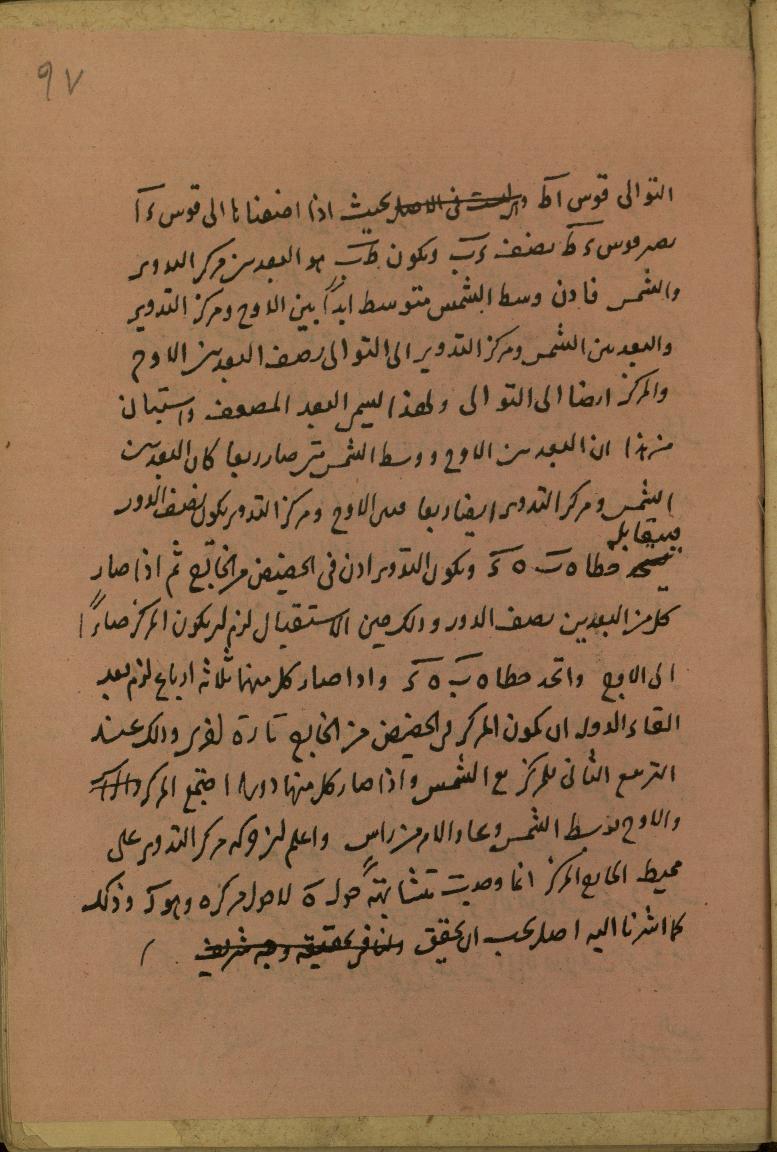 ٩٧
التوالى قوس اط بحيث اذا اضفناها الى قوس ءا
يصير قوس ءط نصف ءب ويكون طب هو البعد بين مركز التدوير
والشمس فاذن وسط الشمس متوسط ابداً بين الاوج ومركز التدوير
والبعد بين الشمس ومركز التدوير الى التوالى نصف البعد بين الاوج
والمركز ايضا الى التوالى ولهذا يسمى البعد المضعف واستبان
من هذا ان البعد بين الاوج ووسط الشمس متى صار ربعا كان البعد بين
الشمس ومركز التدوير ايضا ربعا فبين الاوج ومركز التدوير يكون نصف الدور
فيتقابله
خطا ه ب ه ءَ ويكون التدوير اذن فى الحضيض من الخارج ثم اذا صار
كل من البعدين نصف الدور وذلك حين الاستقبال لزم ان يكون المركز صائراً
الى الاوج واتحد خطا ه ب ه ءَ واذا صار كل منهما ثلاثة ارباع لزم بعد
القاء الدور ان يكون المركز فى الحضيض من الخارج تارة اخرى وذلك عند
التربيع الثانى للمركز مع الشمس واذا صار كل منهما دورا اجتمع المركز
والاوج بوسط الشمس وعاد الامر من راس واعلم ان حركة مركز التدوير على
محيط الخارج المركز انما وجدت متشابهةً حول ه لا حول مركزه وهو ك وذلك
كما اشرنا اليه اصل يجب ان يحقق